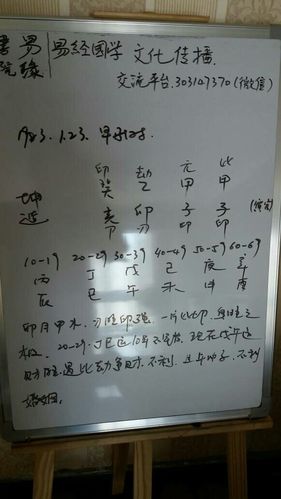 易缘書院
易經國学 文化传播
交流平台:303147370(微信)
1983.1.23. 早子时
印 劫 元 比
癸 乙 甲 甲
坤造 亥 卯 子 子
甲 刃 印 印
10-19 20-29 30-39 40-49 50-59 60-69
丙 丁 戊 己 庚 辛
辰 巳 午 未 申 酉
卯月甲木、刃旺印强 一片比印、身旺之
极。20-29:丁巳运10年不
财旺遇比劫争财、不利、且午冲子、不利
婚姻。